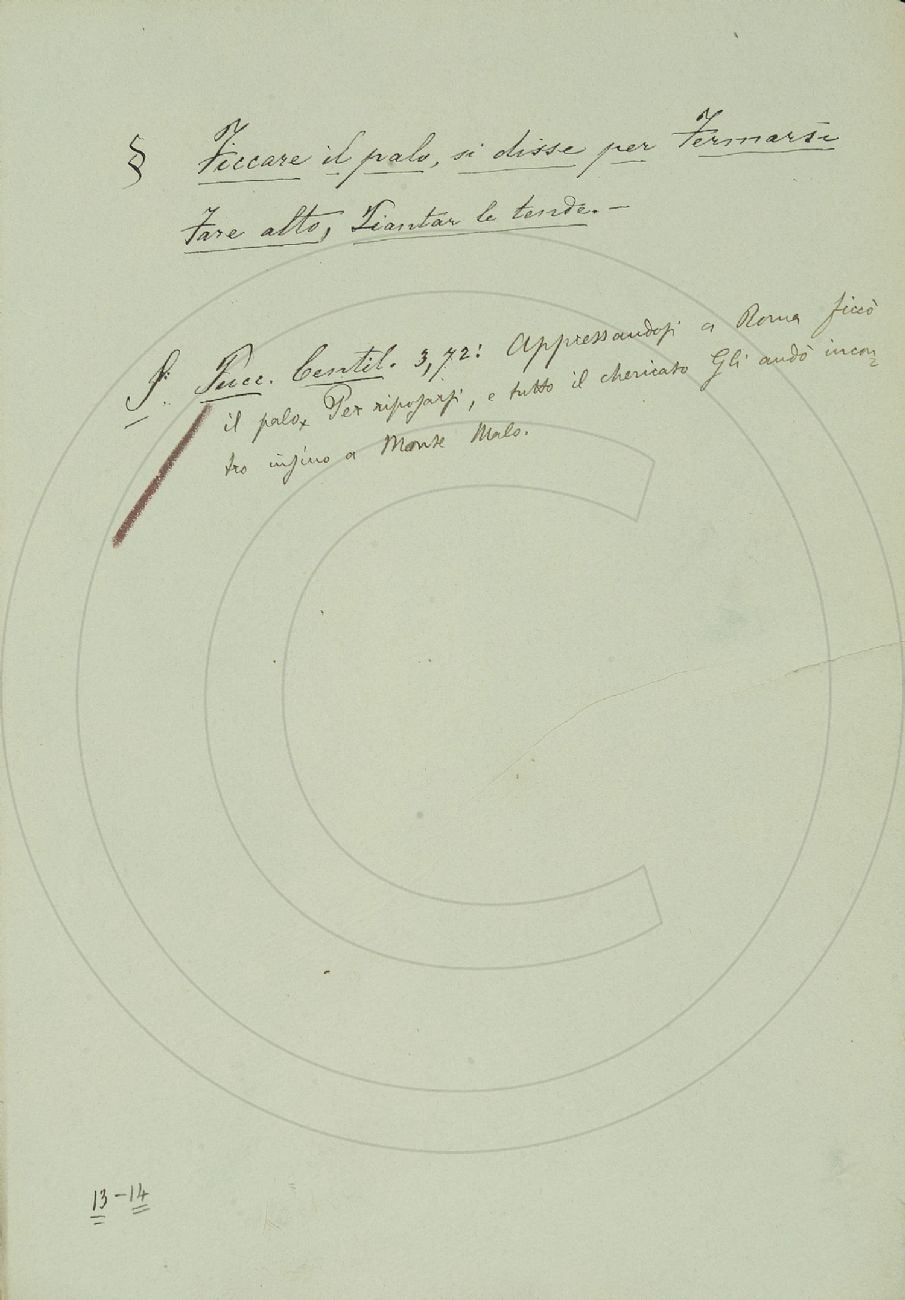 § Ficcare il palo, si disse per Fermarsi
Fare alto, Piantar le tende. —
P. Pucc. Centil. 3,72: Appressandosi a Roma ficcò
il palo, Per riposarsi, e tutto il chericato Gli andò incon
tro insino a Monte Malo.
13-14